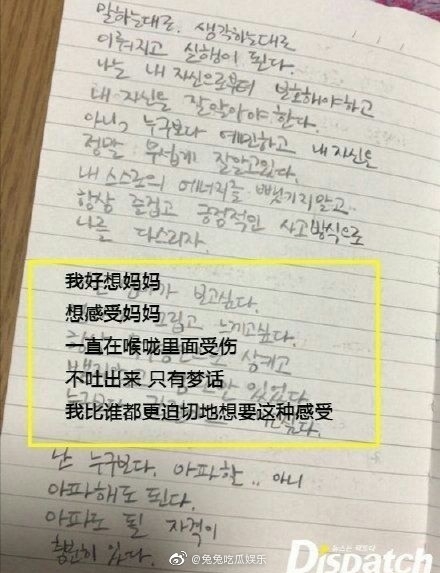 말하는대로. 생각하는대로
이뤄지고 실행이 된다.
나는 내 자신으로부터 보호해야하고
내 자신을 잘알아야 한다.
아니, 누구보다 예민하고 내 자신을
정말 무섭게 잘알고있다.
내 스스로의 에너지를 뺏기지말고..
항상 즐겁고 긍정적인 사고방식으로
나를 다스리자.
가 보고싶다.
그립고 느끼고싶다.
我好想妈妈
想感受妈妈
一直在喉咙里面受伤
不吐出来 只有梦话
我比谁都更迫切地想要这种感受
삼키고
있었다
싶다.
난 누구보다. 아파할.. 아니
아파해도 된다.
아파도 될 자격이
충분히 있다.
@兔兔吃瓜娱乐
뉴스는 팩트다
Dispatch